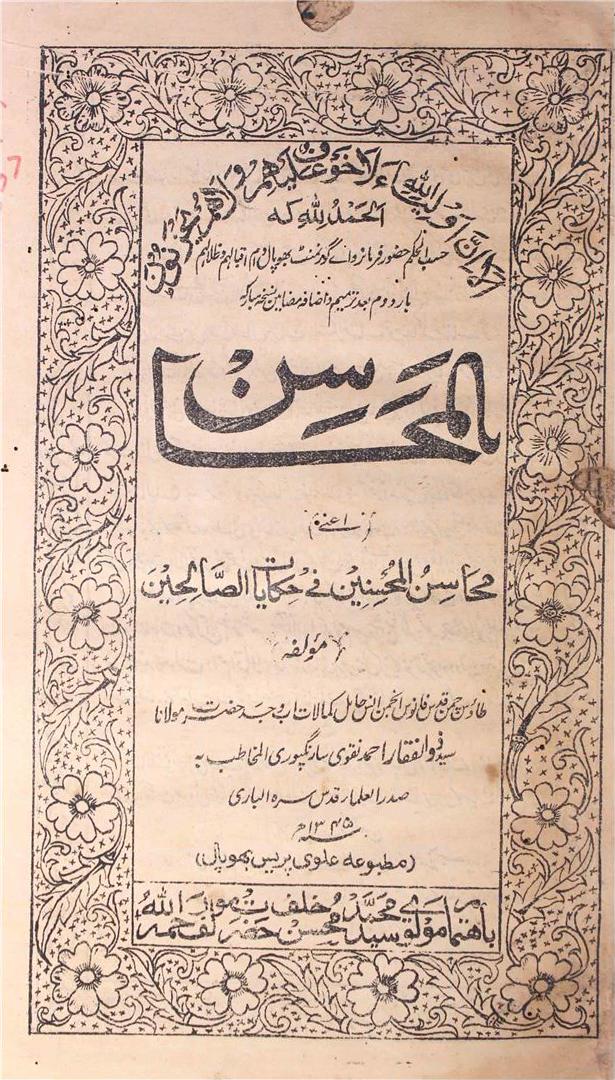 الا ان اولياء الله لا خوف عليهم ولا هم يحزنون
الحمد لله کہ
حسب الحکم حضور فرمانروائے گورنمنٹ بھوپال دام اقبالہم و ظلالہم
بار دوم بعد ترمیم و اضافہ مضامین نسخہ مبارکہ
المحاسن
اعنے
محاسن المحسنين في حكايات الصالحين
مؤلفہ
طاؤس چمن قدس فانوس انجمن انس حامل کمالات اب و جد حضرت مولانا
سید ذوالفقار احمد نقوی سارنگپوری المخاطب بہ
صدر العلماء قدس سرہ الباری
سنہ ۱۳۴۵ھ
(مطبوعہ علوی پریس بھوپال)
باہتمام مولوی سید محمد محسن خلف حضرت مولف رحمہ اللہ